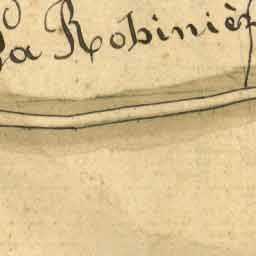 la Robinièr